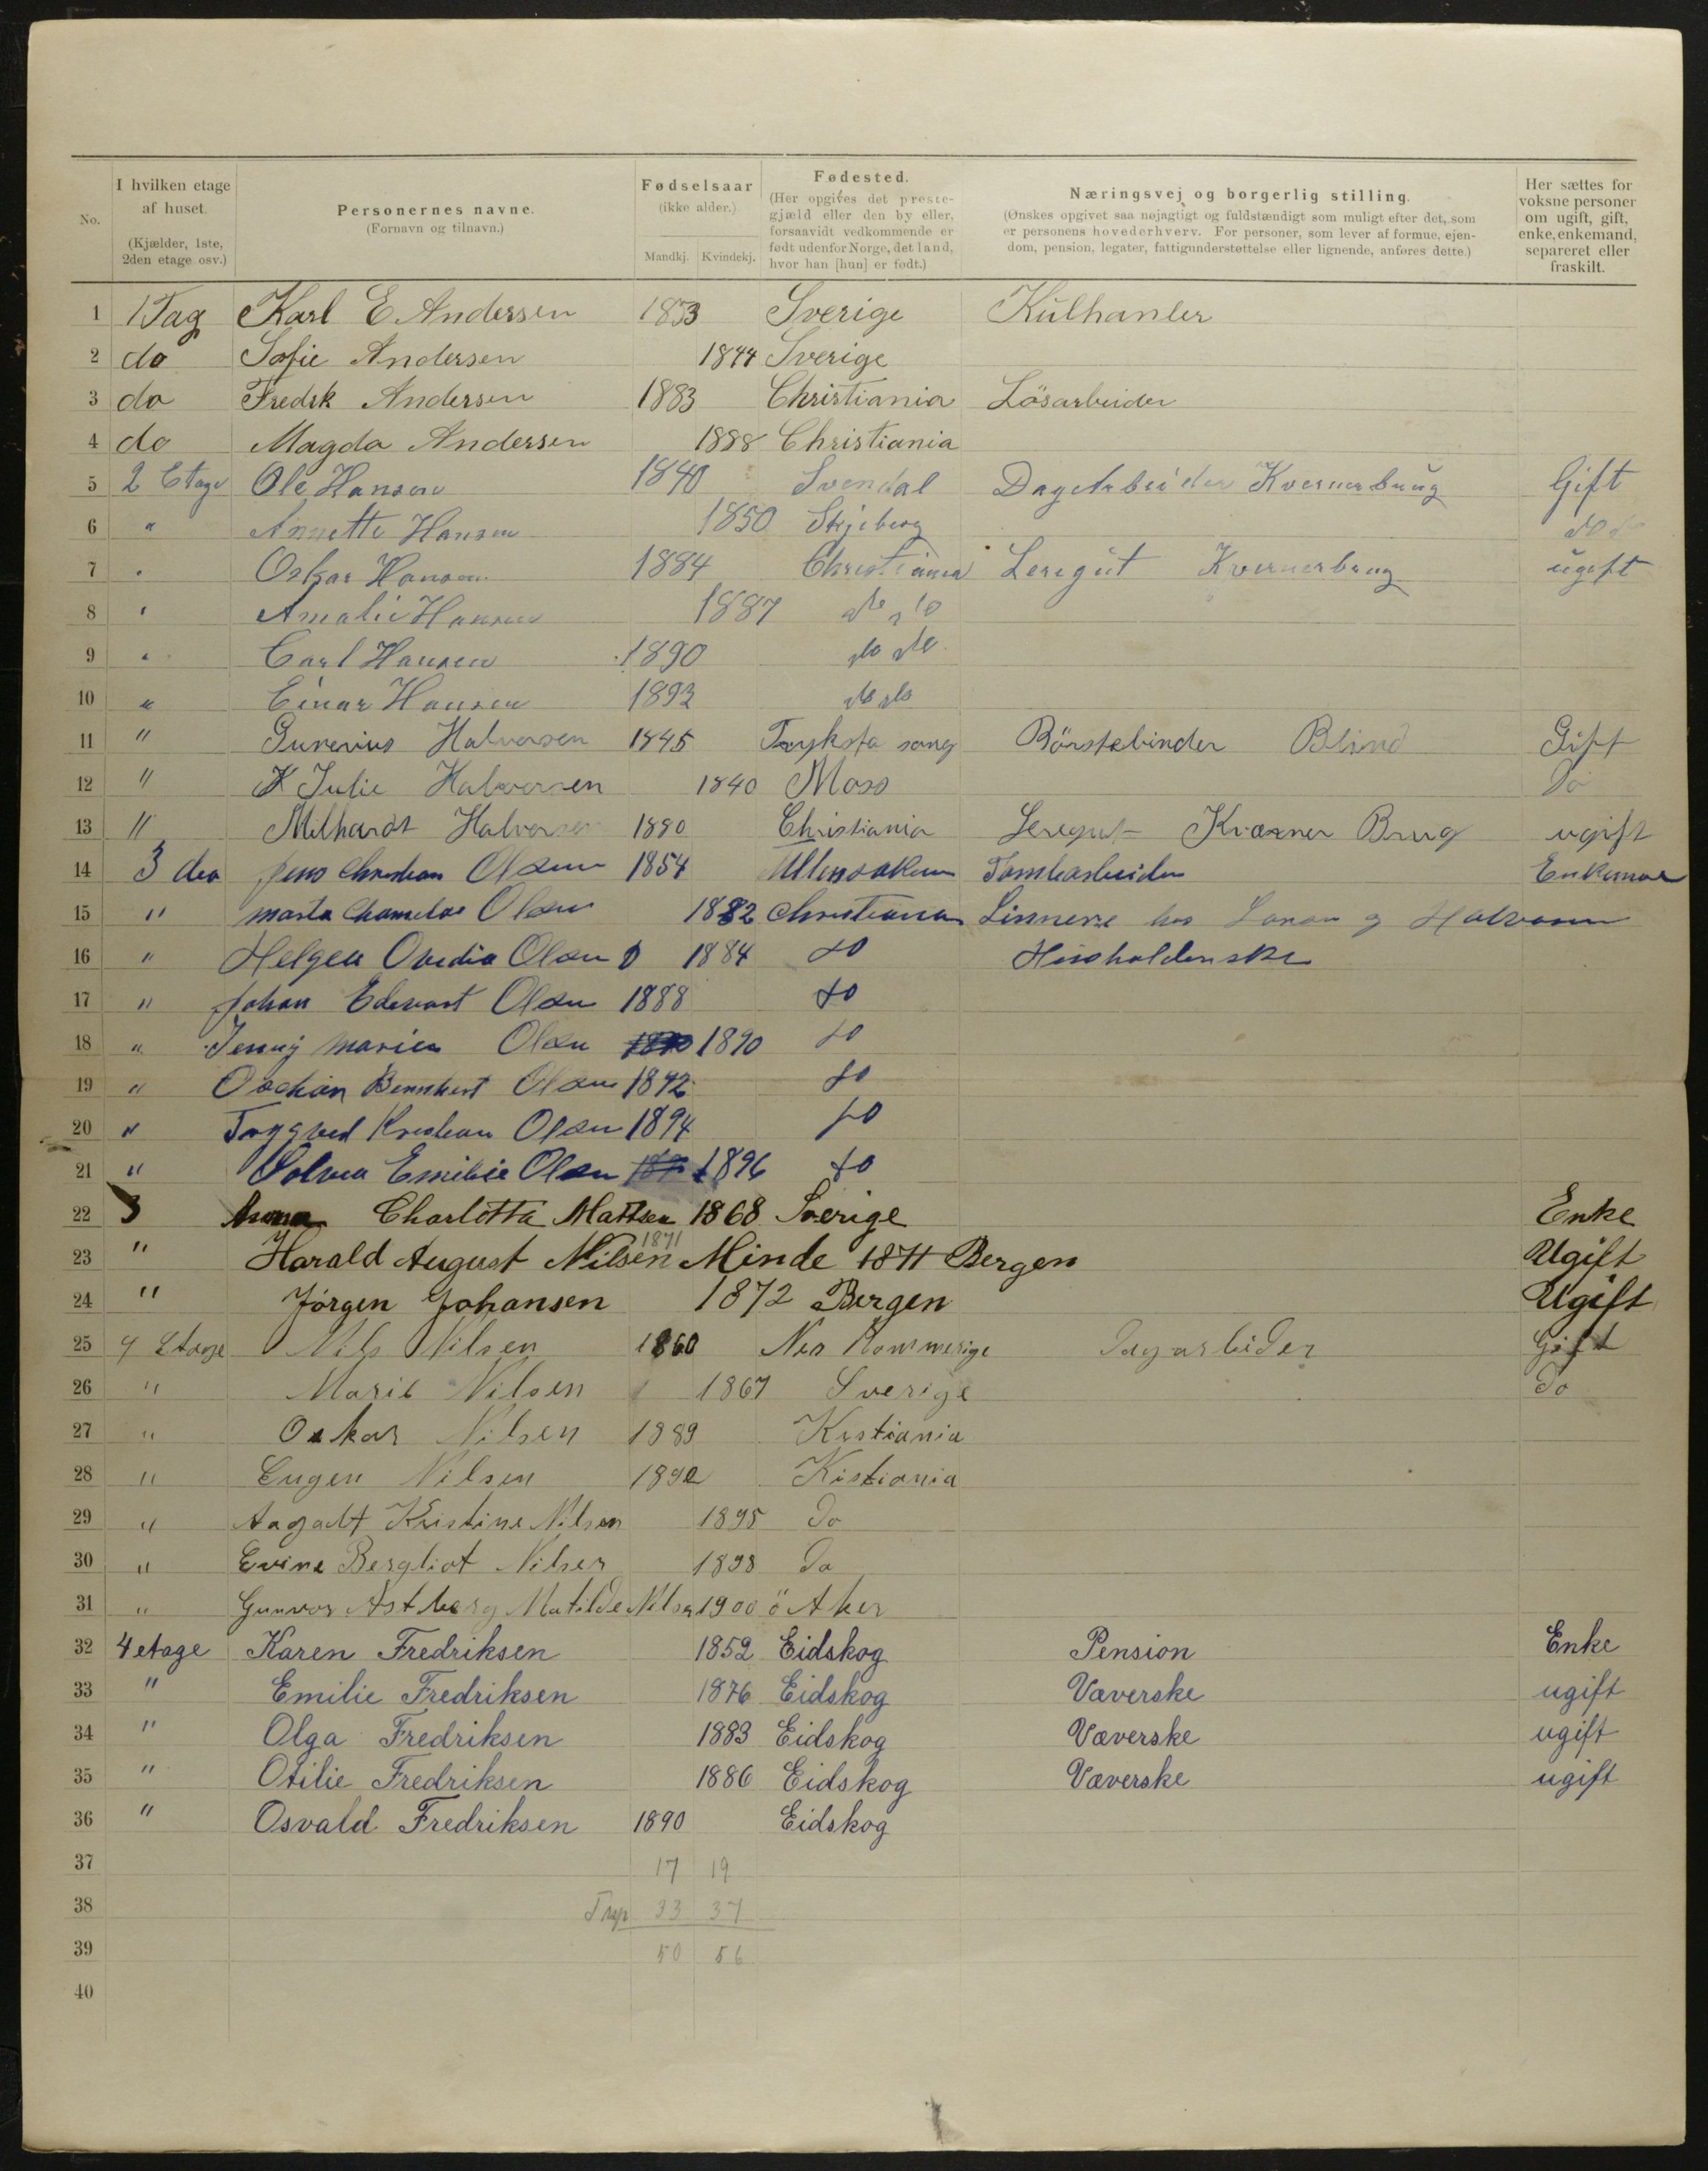 No.
I hvilken etage af huset. (Kjælder, 1ste, 2den etage osv.)
Personernes navne. (Fornavn og tilnavn.)
Fødselsaar (ikke alder.) Mandkj. Kvindekj.
Fødested. (Her opgives det prestegjæld eller den by eller, forsaavidt vedkommende er født udenfor Norge, det land, hvor han [hun] er født.)
Næringsvej og borgerlig stilling. (Ønskes opgivet saa nøjagtigt og fuldstændigt som muligt efter det, som er personens hovederhverv. For personer, som lever af formue, ejendom, pension, legater, fattigunderstøttelse eller lignende, anføres dette.)
Her sættes for voksne personer om ugift, gift, enke, enkemand, separeret eller fraskilt.
1 1 Tag Karl E Andersen 1833 Sverige Kulhanler
2 do Sofie Andersen 1844 Sverige
3 do Fredrk Andersen 1883 Christiania Lösarbeider
4 do Magda Andersen 1888 Christiania
5 2 Etage Ole Hansen 1840 Svendal DagArbeider Kvernerbrug Gift
6 " Annette Hansen 1850 Skjeberg do do
7 " Oskar Hansen 1884 Christiania Leregut Kvernerbrug ugift
8 " Amalie Hansen 1887 do do
9 " Carl Hansen 1890 do do
10 " Einar Hansen 1893 do do
11 " Halvorsen 1845 Börstebinder Blind Gift
12 " K Julie Halvorsen 1840 Moss Do
13 " Milhardt Halvorsen 1890 Christiania Leregut Kværner Brug ugift
14 3 deo Jens Christian Olsen 1854 Ullensaker Tomtearbeider Enkeman
15 " Marta Olsen 1882 Christiania Linnere hos Larsen og Halvorsen
16 " Helgea Ovedia Olsen 1884 do Husholderske
17 " Johan Edevart Olsen 1888 do
18 " Jenny Marie Olsen 1890 do
19 " Bernhart Olsen 1892 do
20 " Tryggved Kristian Olsen 1894 do
21 " Solvea Emilie Olsen 1896 do
22 3 Anna Charlotta Mattsen 1868 Sverige Enke
23 " Harald August Nilsen Minde 1871 1871 Bergen Ugift
24 " Jörgen Johansen 1872 Bergen Ugift
25 4 Etage Nils Nilsen 1860 Nes Rommerige Dagarbeider Gift
26 " Marie Nilsen 1867 Sverige Do
27 " Oskar Nilsen 1889 Kristiania
28 " Eugen Nilsen 1892 Kistiania
29 " Aagadt Kristine Nilsen 1895 Do
30 " Evine Bergliot Nilsen 1898 Do
31 " Gunvor Astberg Matilde Nilsen 1900 ö Aker
32 4 etage Karen Fredriksen 1852 Eidskog Pension Enke
33 " Emilie Fredriksen 1876 Eidskog Væverske ugift
34 " Olga Fredriksen 1883 Eidskog Væverske ugift
35 " Otilie Fredriksen 1886 Eidskog Væverske ugift
36 " Osvald Fredriksen 1890 Eidskog
37 17 19
38 Trsp 33 37
39 50 56
40